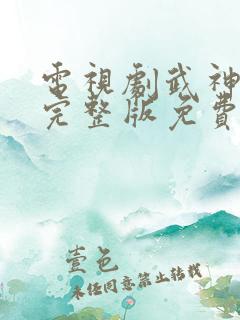 電視劇武神
完整版免費
壹色
未经同意禁止转载